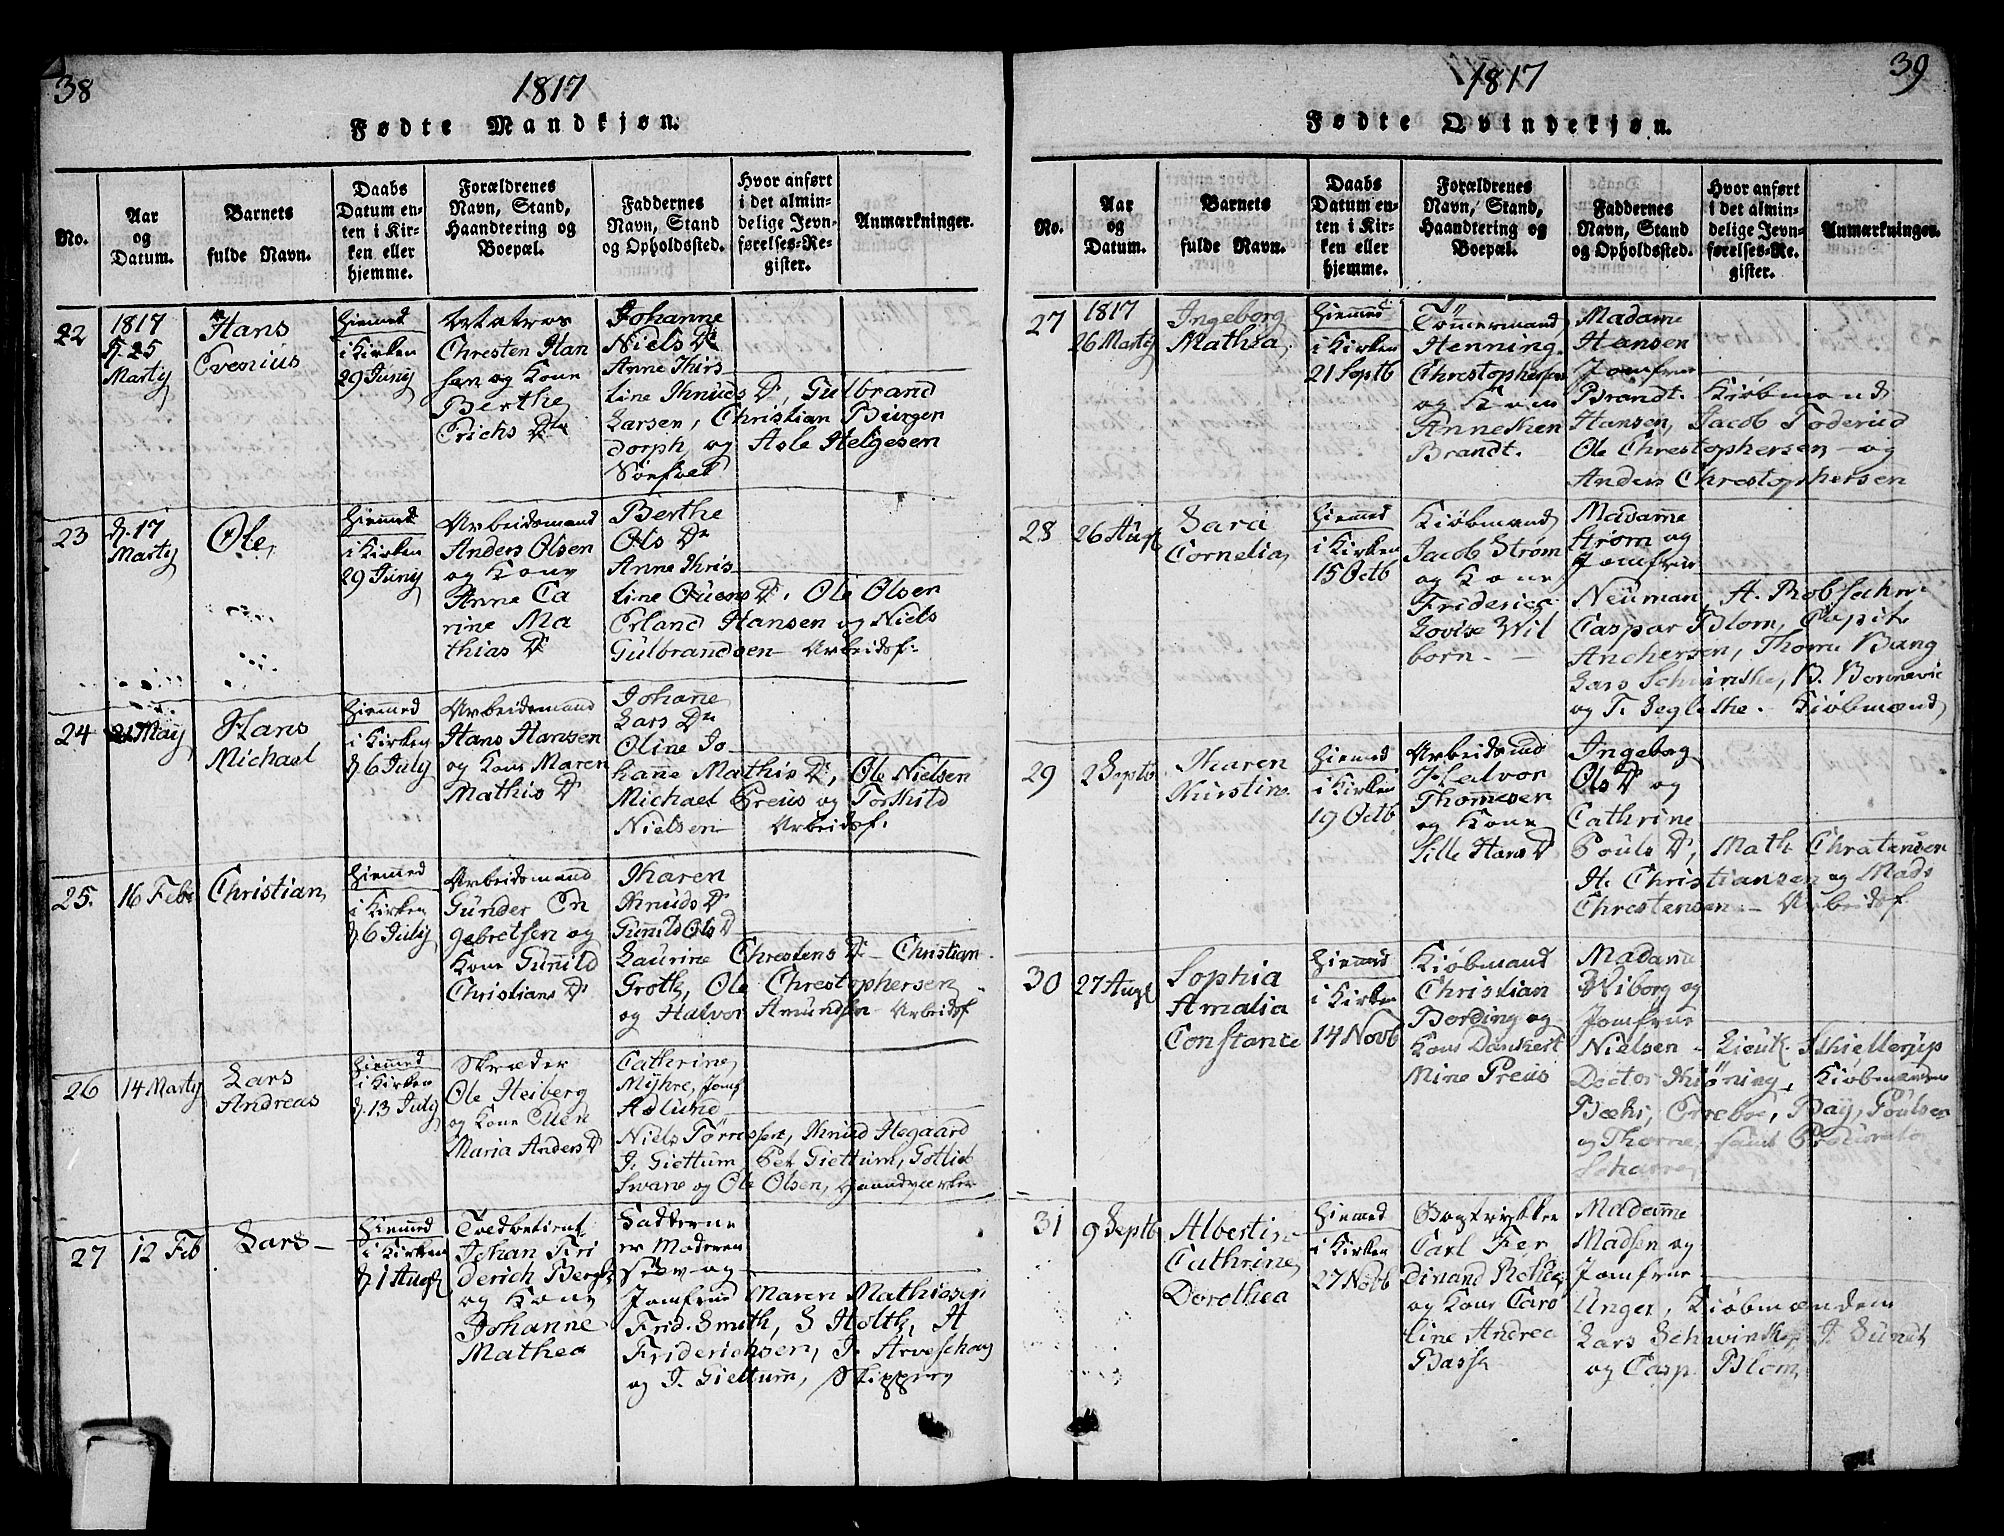 38
1817
Fødte Mandkjøn.
No.
Aar
og
Datum.
Barnets
fulde Navn.
Daabs
Datum en-
ten i Kir-
ken eller
hjemme.
Forældrenes
Navn, Stand,
Haandtering og
Boepæl.
Faddernes
Navn, Stand
og Opholdssted.
Hvor anført
i det almin-
delige Jevn-
førelses-Re-
gister.
Anmærkninger.
22
1817
d. 25
Martij
Hans
Evenius
Hiemmed
i Kirken
29 Junij
Chresten Han
sen og Kone
Berthe
Erichs Dr
Johanne
Niels Dr
Anne Kirs
tine Knuds Dr, Gulbrand
Larsen, Christian Burgen
dorph, og Asle Helgesen
23
d. 17
Martij
Ole,
Hiemmed
i Kirken
29 Junij
Arbeidsmand
Anders Olsen
og Kone
Anne Ca
rine Ma
thias Dr
Berthe
Ols Dr
Anne Kris
tine Ouens Dr. Ole Olsen
Erland Hansen og Niels
Gulbrandsen - Arbeidsf:
24
21 May
Hans
Michael
Hiemmed
i Kirken
d 6 July
Arbeidsmand
Hans Hansen
og Kone Maren
Mathis Dr
Johane
Lars Dr
Oline Jo
hane Mathis Dr, Ole Nielsen
Michael Preus og Torkild
Nielsen - Arbeidsf:
25.
16 Febr
Christian
Hiemmed
i Kirken
d 6 July
Arbeidsmand
Gunder En
gebretsen og
Kone Gunild
Christians Dr
Karen
Knuds Dr
Gunild Ols Dr
Laurine Chrestens Dr - Christian
Groth, Ole Chrestophersen
og Halvor Amundsen - Arbeidsf
26
14 Martij
Lars
Andreas
Hiemmed
i Kirken
d. 13 July
Skræder
Ole Heiberg
og Kone Ellen
Maria Anders Dr
Catherine
Myhre, Jomf
Aslund
Niels Tørrissen, Knud Hegaard
J. Giettum Pet Giettum, Gotlieb
Svane og Ole Olsen, Haandværker
27
12 Feb
Lars -
Hiemmed
i Kirken
d 1 Aug
Toldbetient
Johan Fri
derich Bergh
og Kone
Johanne
Mathea
Fadderne
er Moderen
selv og
Jomfrue Maren Mathiesen
Frid. Smith, S Holth, H
Friderichsen, J. Arveschoug
og J. Giettum, Skippere
1817
39
Fødte Qvindekjøn.
No.
Aar
og
Datum.
Barnets
fulde Navn.
Daabs
Datum en-
ten i Kir-
ken eller
hjemme.
Forældrenes
Navn, Stand,
Haandtering og
Boepæl.
Faddernes
Navn, Stand
og Opholdssted.
Hvor anført
i det almin-
delige Jevn-
førelses-Re-
gister.
Anmærkninger.
27
1817
26 Martij
Ingeborg
Mathea
Hiemmed
i Kirken
21 Septb
Tømmermand
Henning
Chrestophersen
og Kone
Anneken
Brandt.
Madame
Hansen
Jomfrue
Brandt. Kiøbmænd
Hansen, Jacob Toderud
Ole Chrestophersen - og
Anders Chrestophersen
28
26 Aug
Sara
Cornelia
Hiemmed
i Kirken
15 Octb
Kiøbmand
Jacob Strøm
og Kone
Friderica
Lovise Wil
born. -
Madamme
Strøm og
Jomfrue
Neuman, H. Robsahm
Caspar Blom, Capit.
Anchersen, Thom Bang
Lars Schvinske, B. Bonnevie
og T. Segleske. Kiøbmænd
29
2 Septb
Karen
Kirstine
Hiemmed
i Kirken
19 Octb
Arbeidsmd
Halvor
Thommesen
og Kone
Lille Hans Dr
Ingeborg
Ols Dr og
Cathrine
Pouls Dr, Math Chrestensen
H. Christiansen og Mads
Chrestensen - Arbeidsf
30
27 Aug
Sophia
Amalia
Constance
Hiemmed
i Kirken
14 Novb
Kiøbmand
Christian
Bording og
Kone Dankert
Mine Preus
Madame
Wiborg og
Jomfrue
Nielsen - Lieut. Skiellerup
Doctor Kiøning, Kiøbmændene
Becks, Errebøe, Bay, Poulsen
og Thorne, samt Procurator
Scharre,
31
9 Septb
Albertine
Cathrine
Dorothea
Hiemmed
i Kirken
27 Novb
Bogtrykker
Carl Fer
dinand Rohde
og Kone Caro
line Andrea
Basse
Madamme
Madsen og
Jomfrue
Unger, Kiøbmændene
Lars Schwinske, J. Sundt
og Casp Blom,